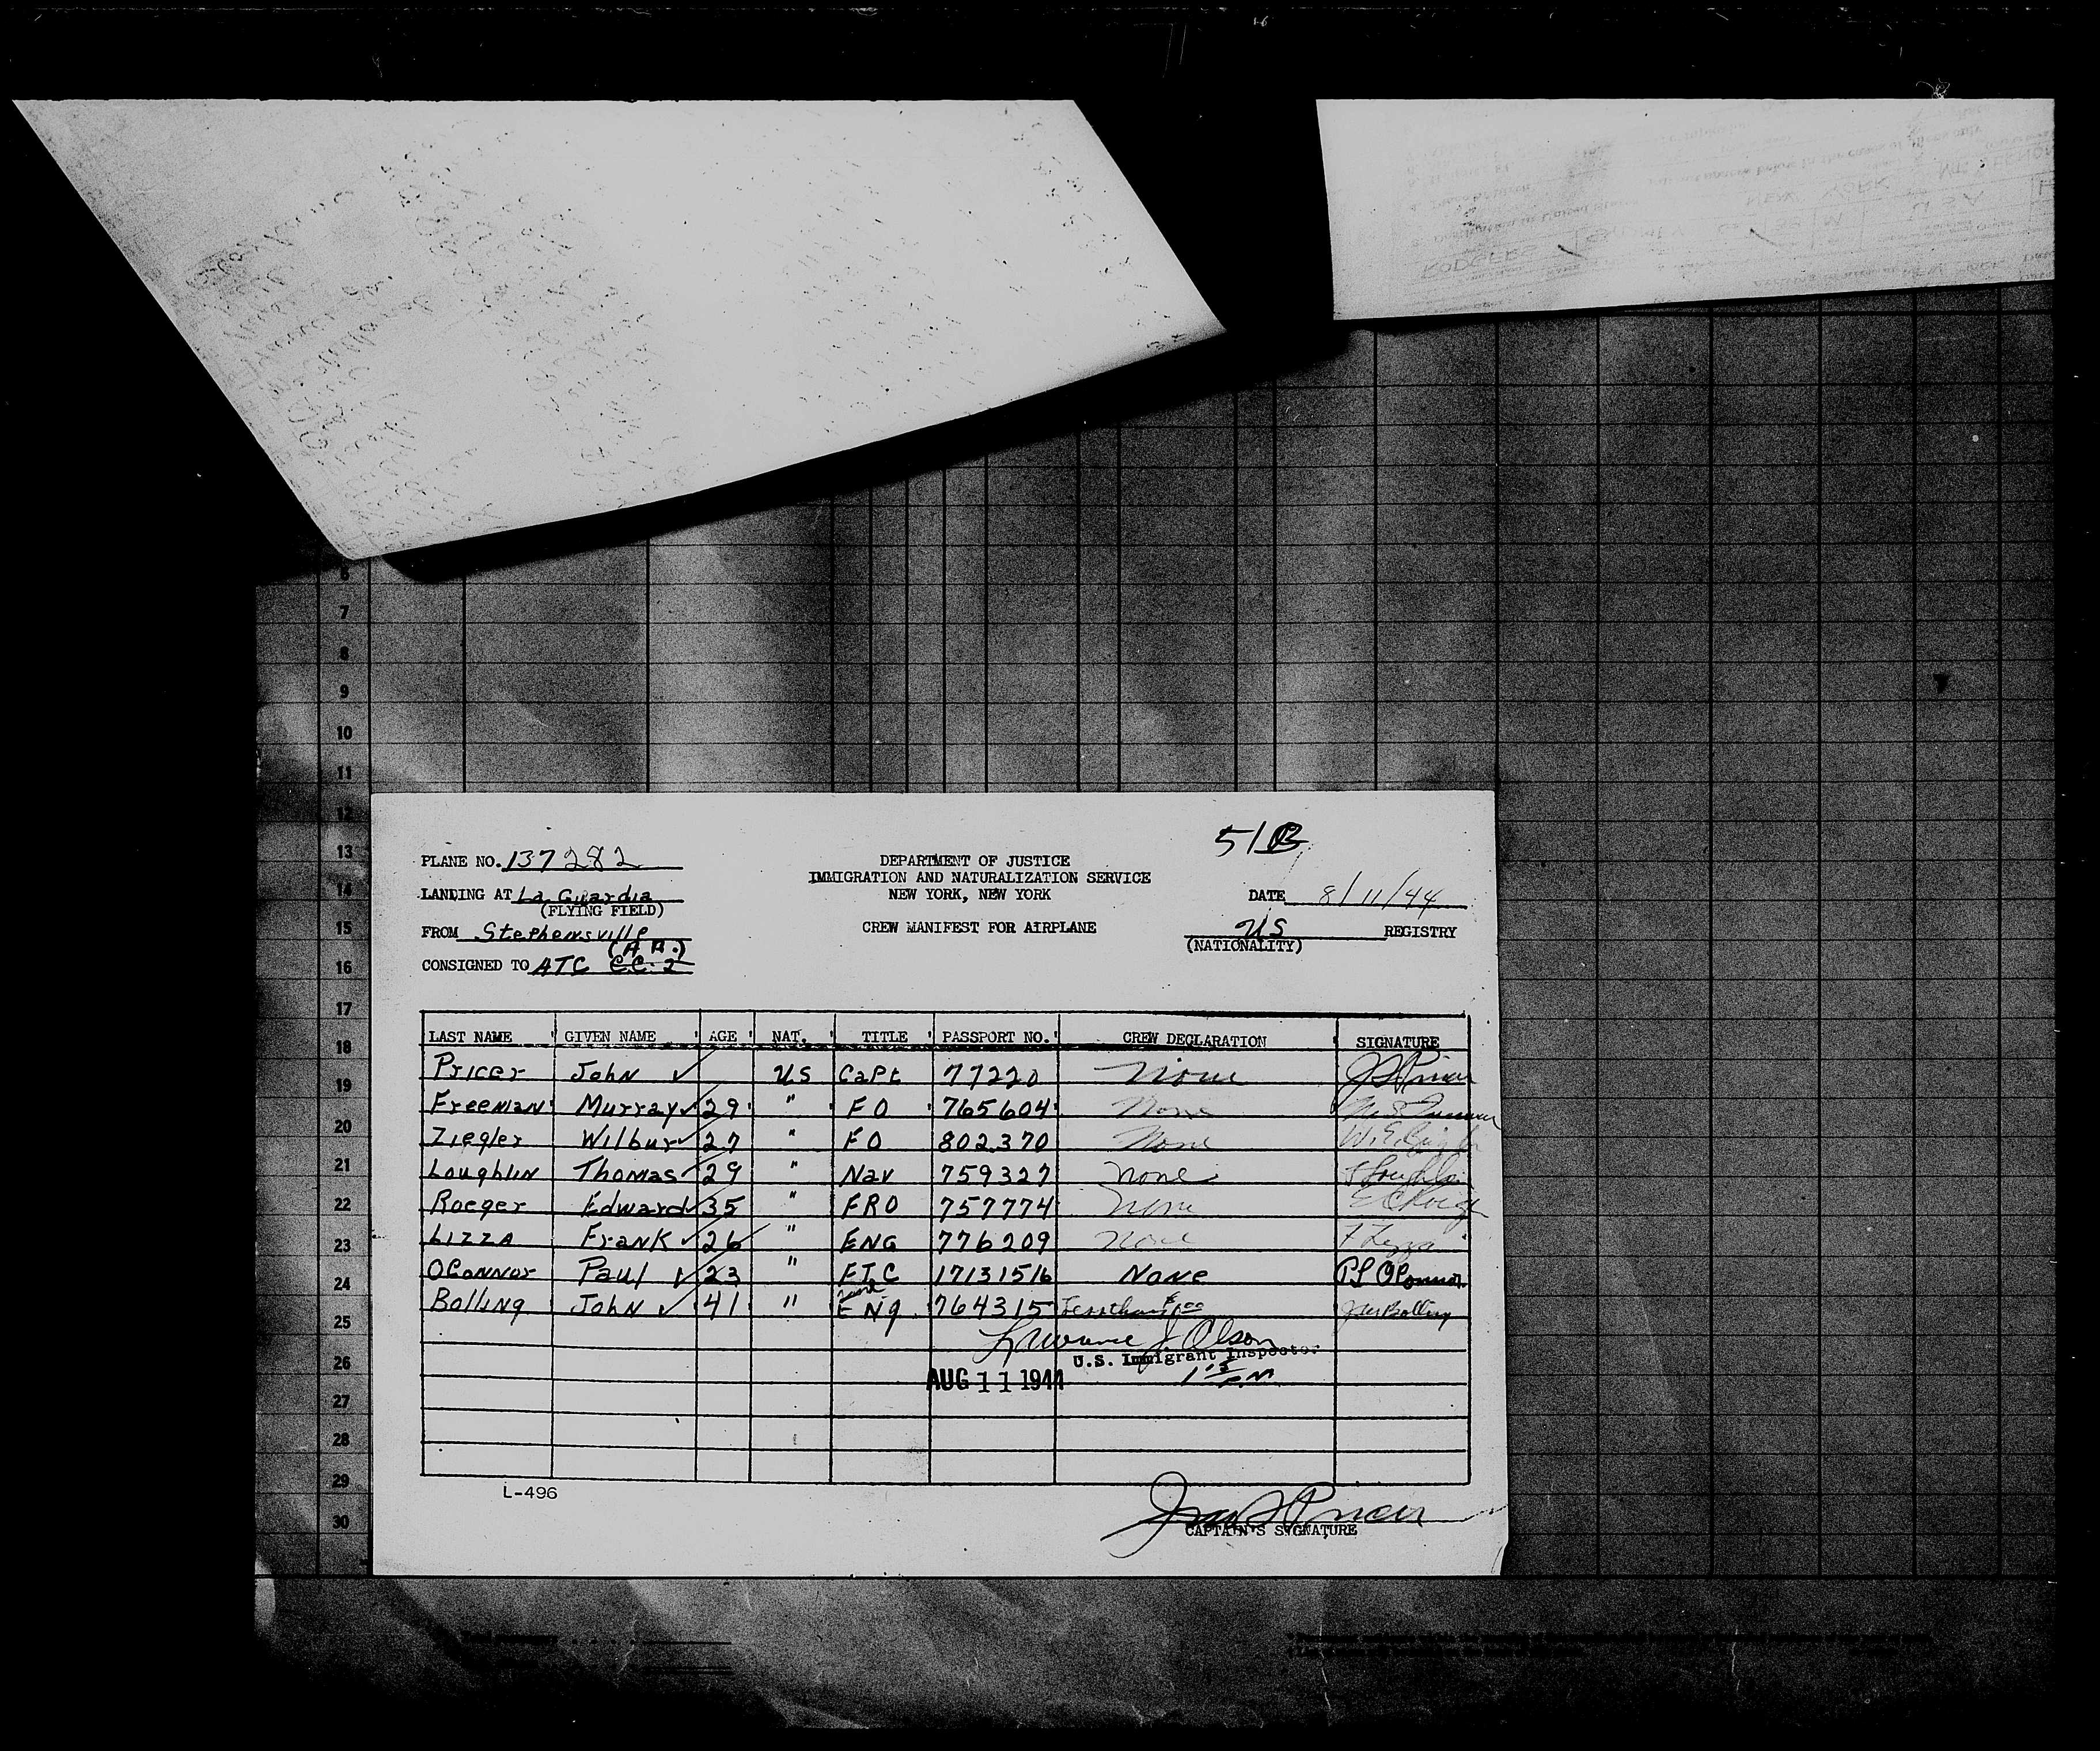 6
7
8
9
10
11
12
13
14
15
16
17
18
19
20
21
22
23
24
25
26
27
28
29
30
PLANE NO. 137282
DEPARTMENT OF JUSTICE
IMMIGRATION AND NATURALIZATION SERVICE
NEW YORK, NEW YORK
LANDING AT La Guardia
(FLYING FIELD)
DATE 8/11/44
FROM Stephensville
CREW MANIFEST FOR AIRPLANE
US REGISTRY
(NATIONALITY)
CONSIGNED TO ATC
LAST NAME GIVEN NAME AGE NAT. TITLE PASSPORT NO. CREW DECLARATION SIGNATURE
Pricer John ✓ US Capt 77220 None
Freeman Murray ✓ 29 " FO 765604 None
Ziegler Wilbur ✓ 27 " FO 802370 None
Loughlin Thomas ✓ 29 " Nav 759327 None
Roeger Edward ✓ 35 " FRO 757774 None
Lizza Frank ✓ 26 " ENG 776209 None F Lizza
OConnor Paul ✓ 23 " 17131516 None PL OConnor
Bolling John ✓ 41 " Eng 764315 JW Bolling
Lawrence J. Olson
U.S. Immigrant Inspector
AUG 11 1944
L-496
CAPTAIN'S SIGNATURE